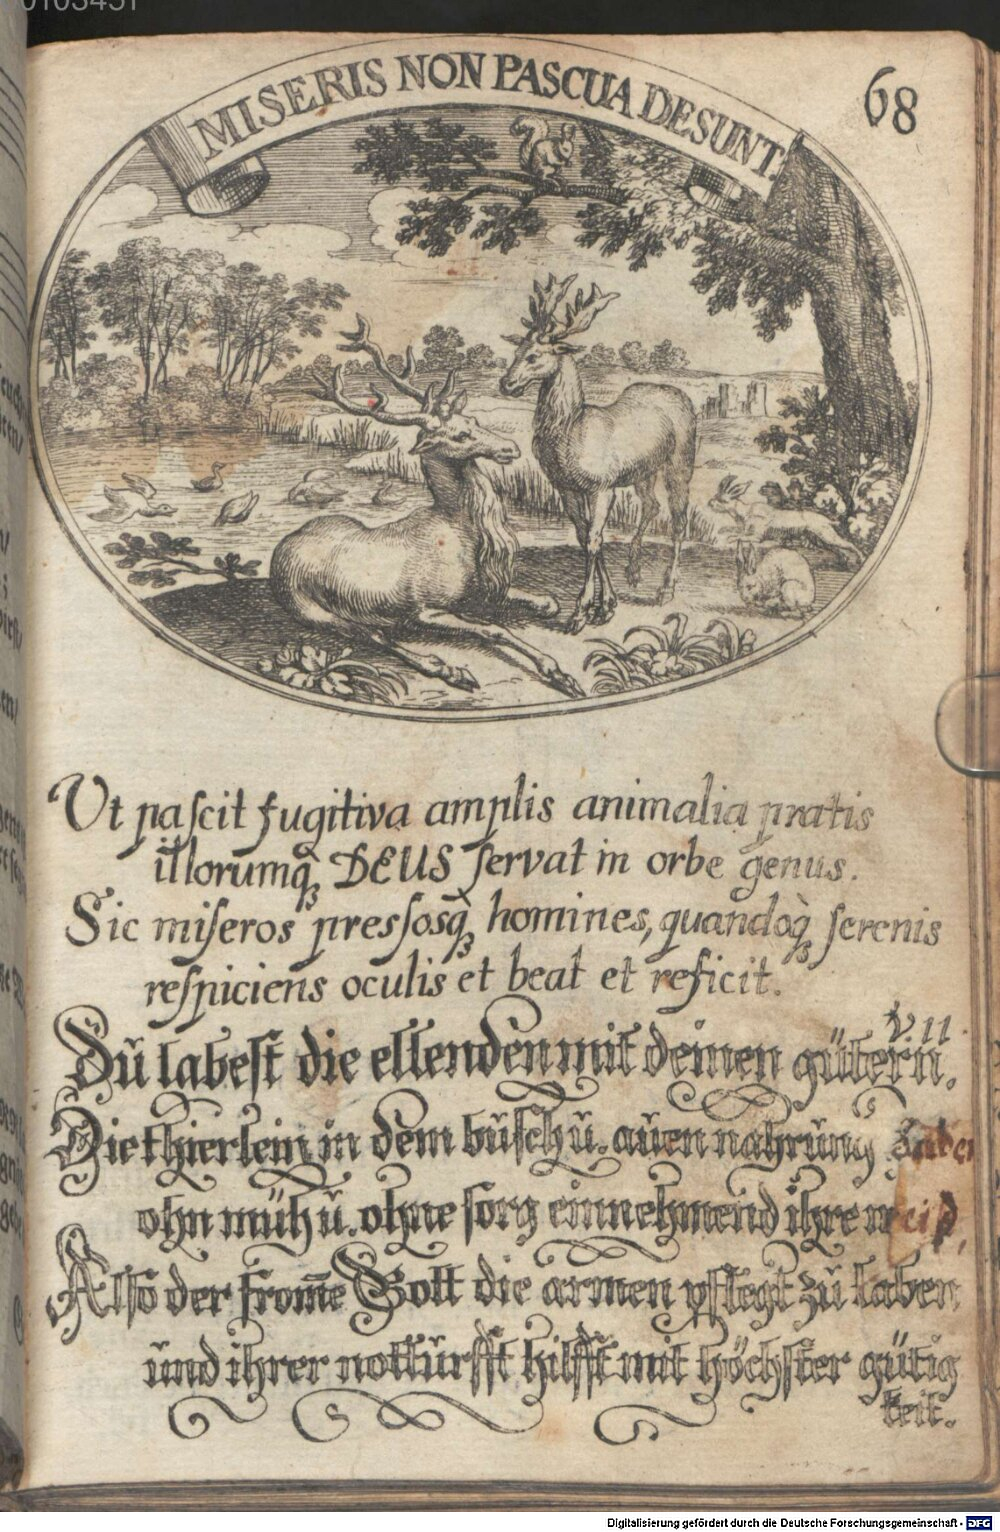 68
MISERIS NON PASCUA DESUNT.
Ut pascit fugitiva amplis animalia pratis
illorumq₃ DEUS servat in orbe genus.
Sic miseros pressosq₃ homines, quandoq₃ serenis
respiciens oculis et beat et reficit.
VII
Dŭ labest die ellenden mit deinen gŭterŭ.
Die thierlein in dem bŭsch ŭ. aŭen nahrŭng haben
ohn müh ŭ. ohne sorg einnehmend ihre weid,
Also der from̄e Gott die armen pflegt zŭ laben
ŭnd ihrer nottŭrfft hilfft mit höchster gütig
keit.
Digitalisierung gefördert durch die Deutsche Forschungsgemeinschaft - DFG